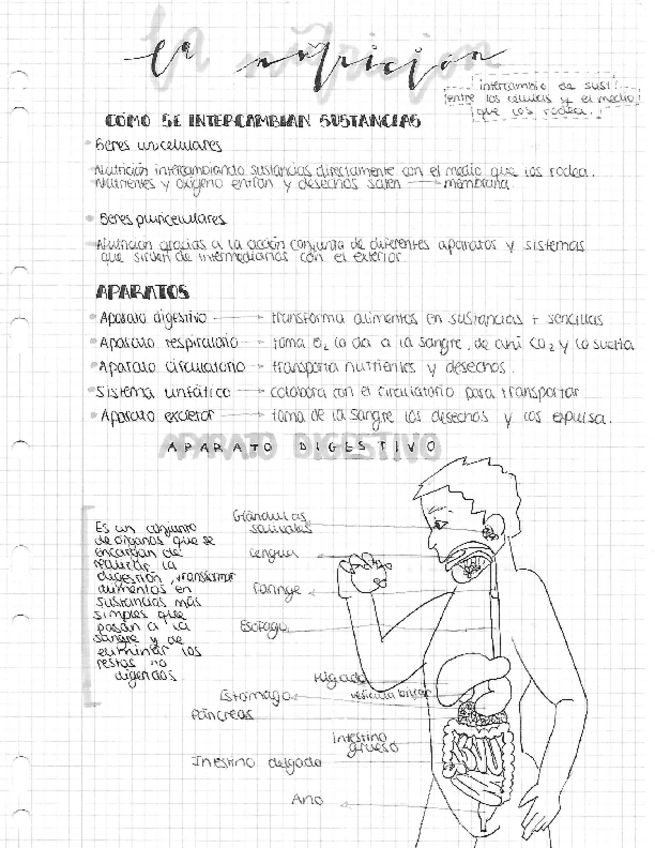 la nutrición
intercambio de sust.
entre las células y el medio
que las rodea.
CÓMO SE INTERCAMBIAN SUSTANCIAS
Seres unicelulares
Nutrición intercambiando sustancias directamente con el medio que los rodea.
Nutrientes y oxígeno entran y desechos salen → membrana
Seres pluricelulares
Nutrición gracias a la acción conjunta de diferentes aparatos y sistemas
que sirven de intermediarios con el exterior
APARATOS
Aparato digestivo → transforma alimentos en sustancias + sencillas
Aparato respiratorio → toma O₂ lo da a la sangre, de ahí CO₂ y lo suelta
Aparato circulatorio → transporta nutrientes y desechos.
Sistema linfático → colabora con el circulatorio para transportar
Aparato excretor → toma de la sangre los desechos y los expulsa.
APARATO DIGESTIVO
Es un conjunto
de órganos que se
encargan de
realizar la
digestión, transformar
alimentos en
sustancias más
simples que
pasan a la
sangre y de
eliminar los
restos no
digeridos
Glándulas
salivales
Lengua
Faringe
Esófago
Hígado
Estómago
vesícula biliar
Páncreas
intestino
grueso
Intestino delgado
Ano